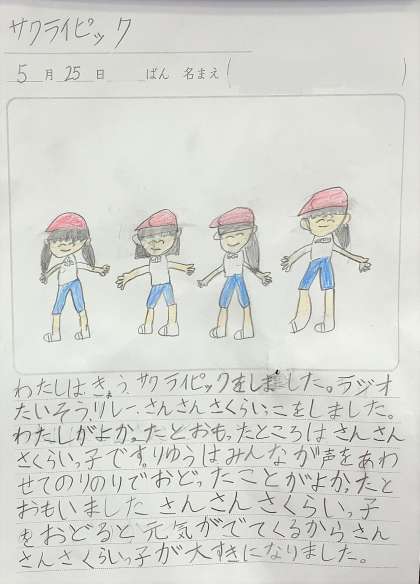 サクライピック
5月25日 ばん 名まえ( )
わたしは、きょう、サクライピックをしました。ラジオ
たいそう、リレー、さんさんさくらいっこをしました。
わたしがよかったとおもったところは さんさん
さくらいっ子です。りゆうはみんなが声をあわ
せてのりのりでおどったことがよかったと
おもいました さんさん さくらいっ子
をおどると元気がでてくるからさん
さんさくらいっ子が大すきになりました。